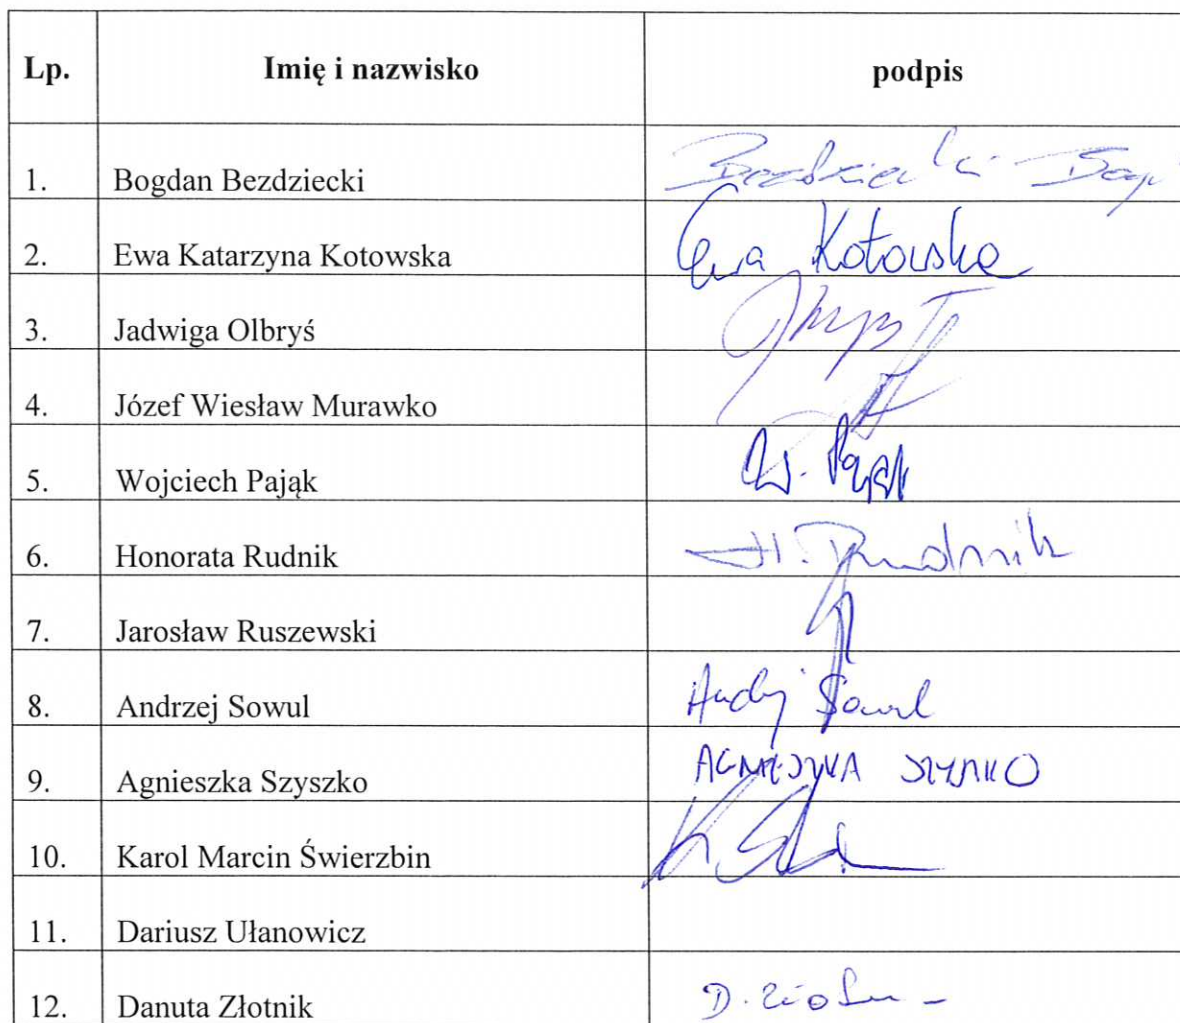 Lp. Imię i nazwisko podpis
1. Bogdan Bezdziecki Bezdziecki
2. Ewa Katarzyna Kotowska Ewa Kotowska
3. Jadwiga Olbryś
4. Józef Wiesław Murawko
5. Wojciech Pająk W. Pająk
6. Honorata Rudnik H. Rudnik
7. Jarosław Ruszewski
8. Andrzej Sowul Andrzej Sowul
9. Agnieszka Szyszko AGNIESZKA SZYSZKO
10. Karol Marcin Świerzbin
11. Dariusz Ułanowicz
12. Danuta Złotnik